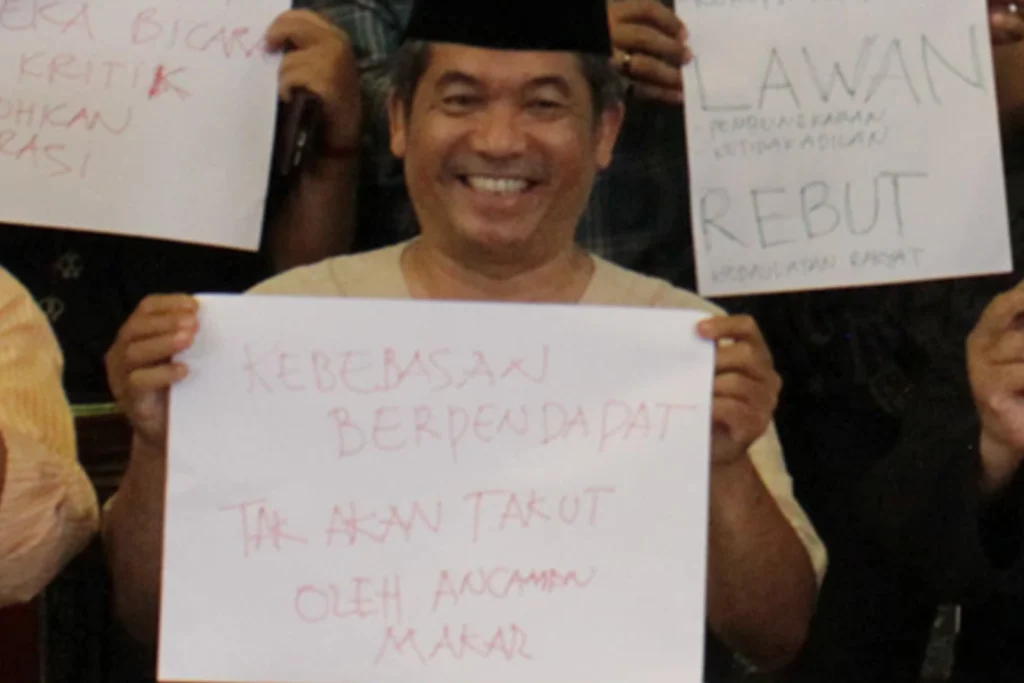 EKA BICARA
KRITIK
OHKAN
RASI
LAWAN
PEMBUNGKAMAN
KETIDAKADILAN
REBUT
KEDAULATAN RAKYAT
KEBEBASAN
BERPENDAPAT
TAK AKAN TAKUT
OLEH ANCAMAN
MAKAR